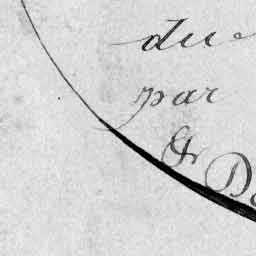 due
par
& D